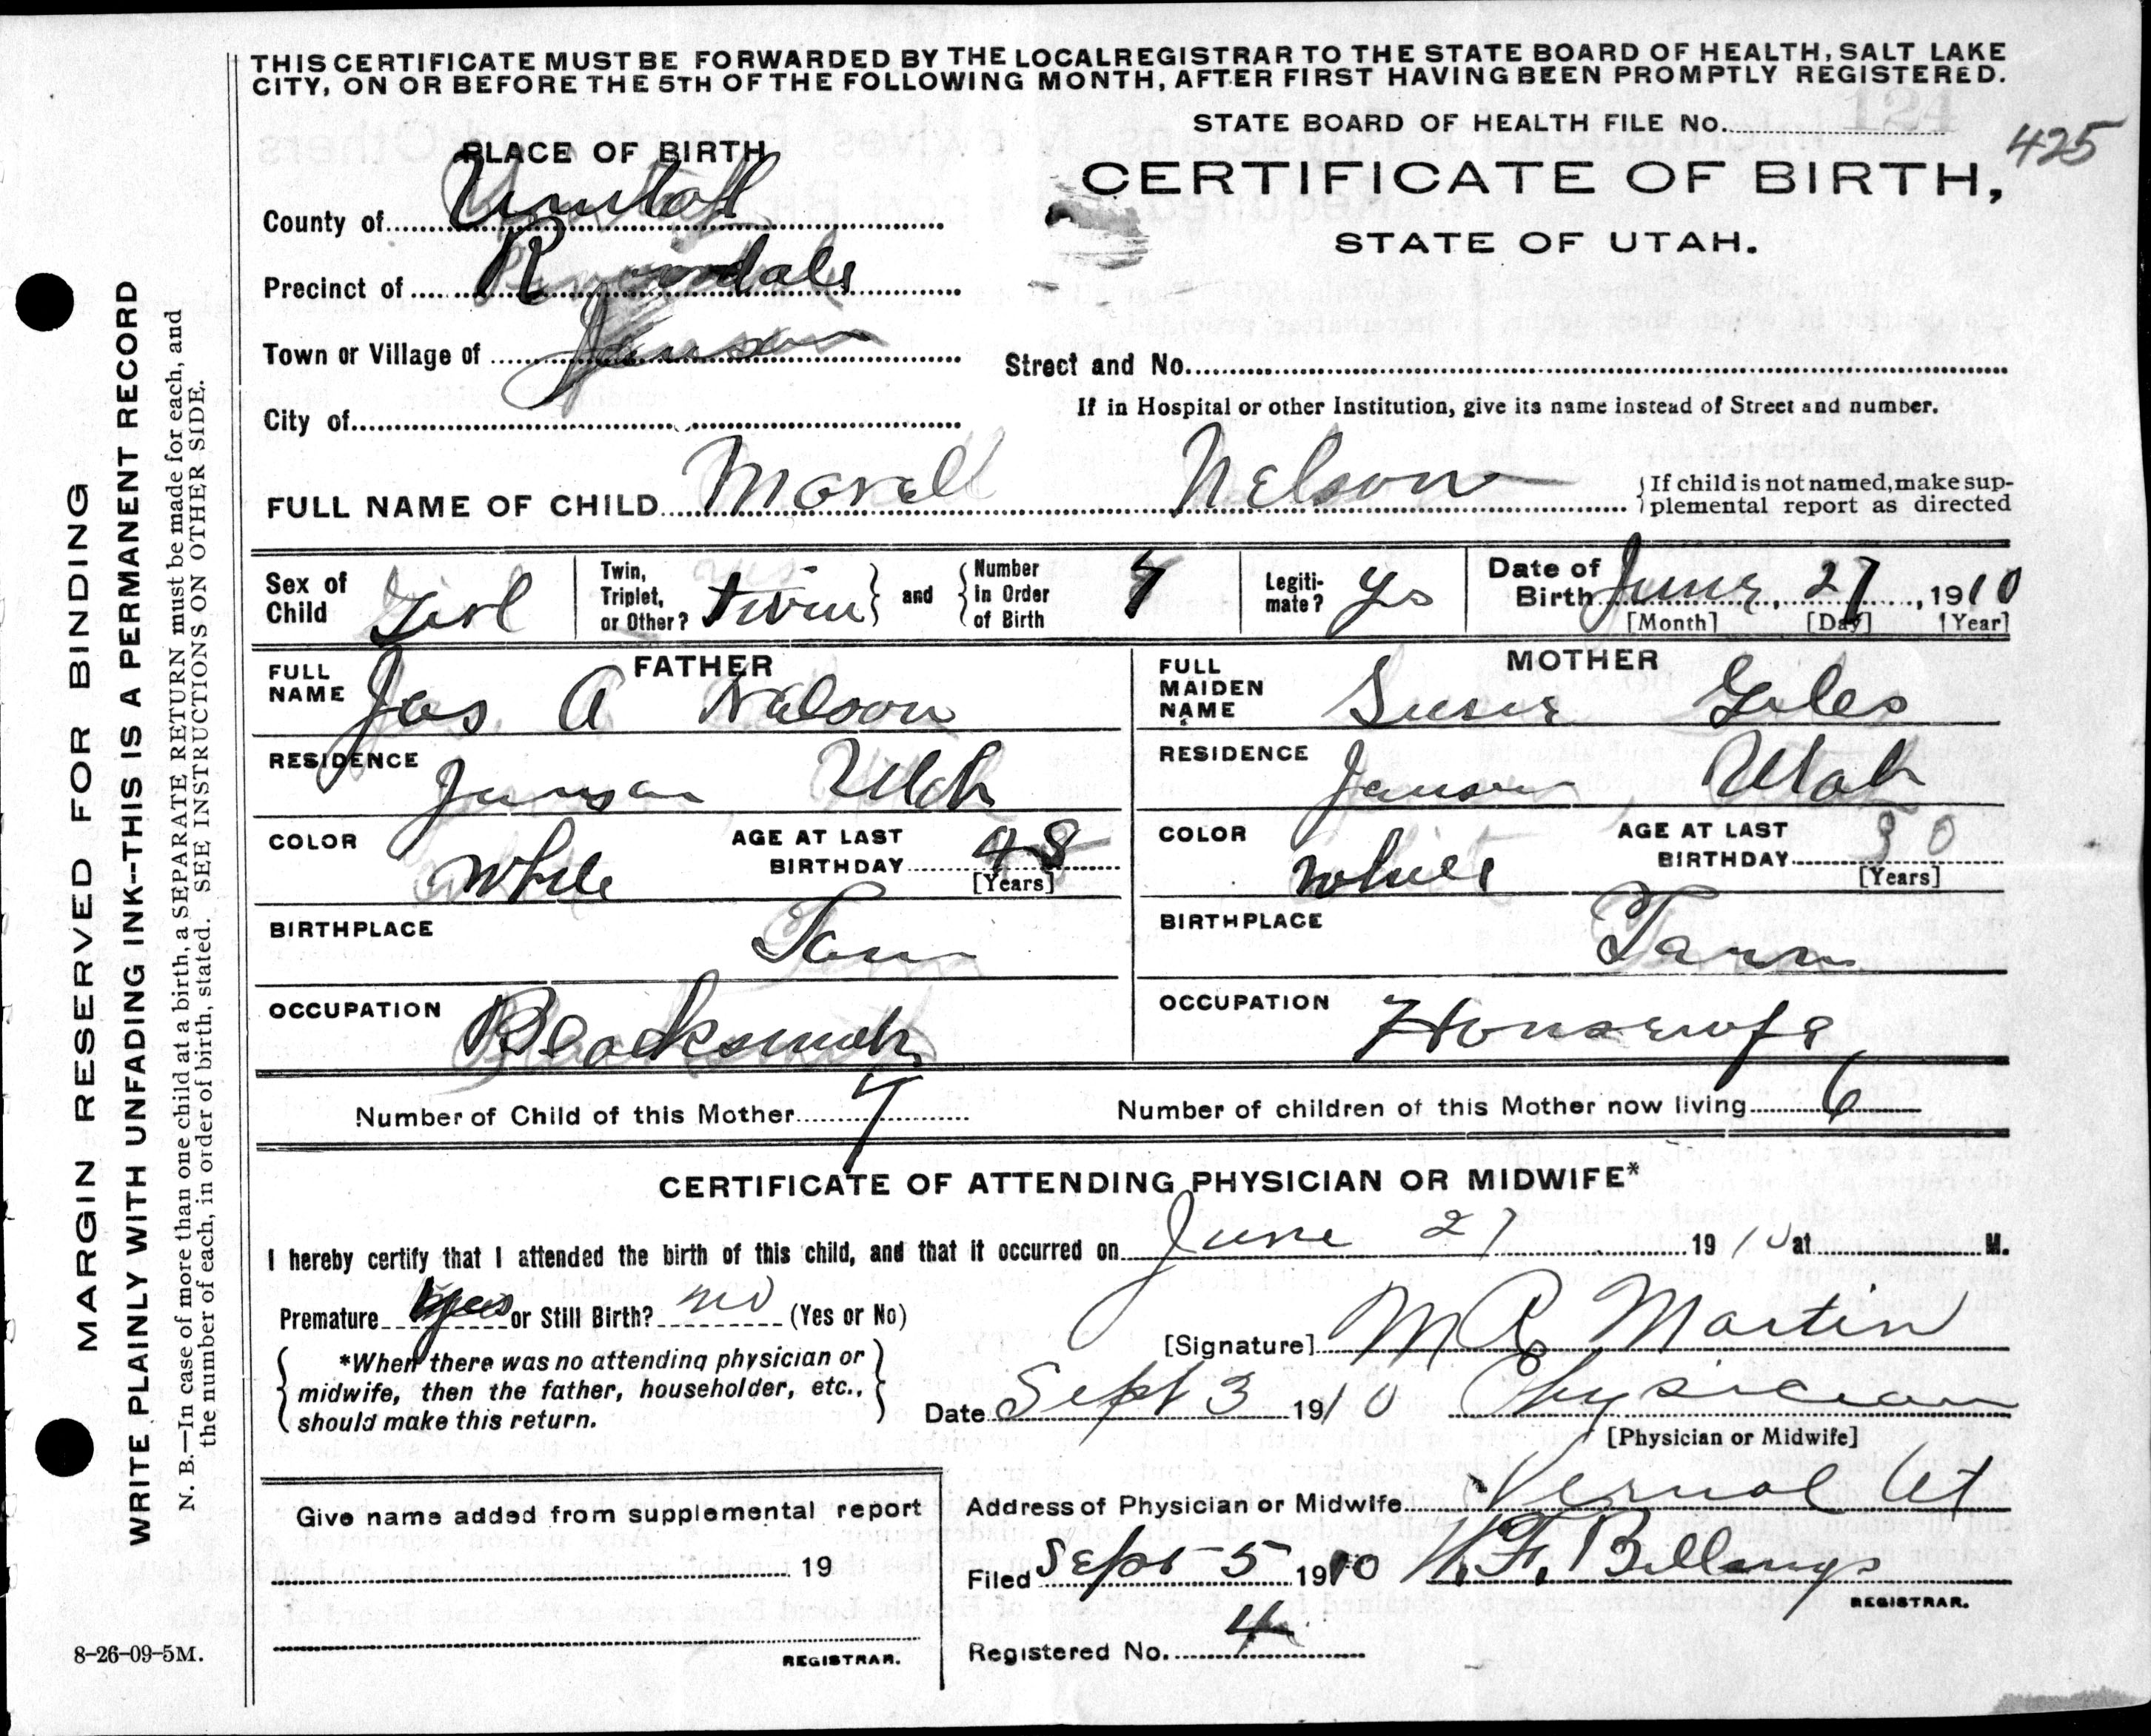 THIS CERTIFICATE MUST BE FORWARDED BY THE LOCAL REGISTRAR TO THE STATE BOARD OF HEALTH, SALT LAKE
CITY, ON OR BEFORE THE 5TH OF THE FOLLOWING MONTH, AFTER FIRST HAVING BEEN PROMPTLY REGISTERED.
STATE BOARD OF HEALTH FILE No. 124
425
PLACE OF BIRTH
CERTIFICATE OF BIRTH,
STATE OF UTAH.
County of Uintah
Precinct of
Town or Village of Jensen
Street and No.
If in Hospital or other Institution, give its name instead of Street and number.
City of
FULL NAME OF CHILD Marell Nelson
If child is not named, make sup-
plemental report as directed
Sex of Child Girl
Twin, Triplet, or Other? twin
and
Number in Order of Birth
Legiti-mate? Yes
Date of Birth June, 27, 1910
[Month] [Day] [Year]
FATHER
FULL NAME Jas A Nelson
RESIDENCE Jensen Utah
COLOR White
AGE AT LAST BIRTHDAY 48
[Years]
BIRTHPLACE
OCCUPATION Blacksmith
MOTHER
FULL MAIDEN NAME Susie Giles
RESIDENCE Jensen, Utah
COLOR White
AGE AT LAST BIRTHDAY 30
[Years]
BIRTHPLACE
OCCUPATION Housewife
Number of Child of this Mother 7
Number of children of this Mother now living 6
CERTIFICATE OF ATTENDING PHYSICIAN OR MIDWIFE*
I hereby certify that I attended the birth of this child, and that it occurred on June 27 1910 at M.
Premature Yes or Still Birth? no (Yes or No)
[Signature] M R Martin
*When there was no attending physician or
midwife, then the father, householder, etc.,
should make this return.
Date Sept 3 1910 Physician
[Physician or Midwife]
Address of Physician or Midwife Vernal Ut
Give name added from supplemental report
19
REGISTRAR.
Filed Sept 5 1910 Billings
REGISTRAR.
Registered No. 4
8-26-09-5M.
MARGIN RESERVED FOR BINDING
WRITE PLAINLY WITH UNFADING INK--THIS IS A PERMANENT RECORD
N. B.—In case of more than one child at a birth, a SEPARATE RETURN must be made for each, and
the number of each, in order of birth, stated. SEE INSTRUCTIONS ON OTHER SIDE.